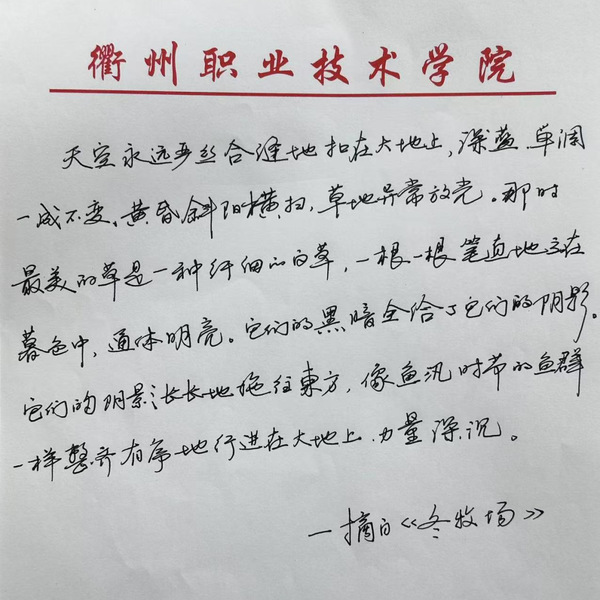 衢州职业技术学院
天空永远严丝合缝地扣在大地上，深蓝，单调
一成不变。黄昏斜阳横扫，草地异常放亮。那时
最美的草是一种纤细的白草，一根一根笔直地立在
暮色中，通体明亮。它们的黑暗全给了它们的阴影。
它们的阴影长长地拖往东方，像鱼汛时节的鱼群
一样整齐有序地行进在大地上，力量深沉。
—摘自《冬牧场》